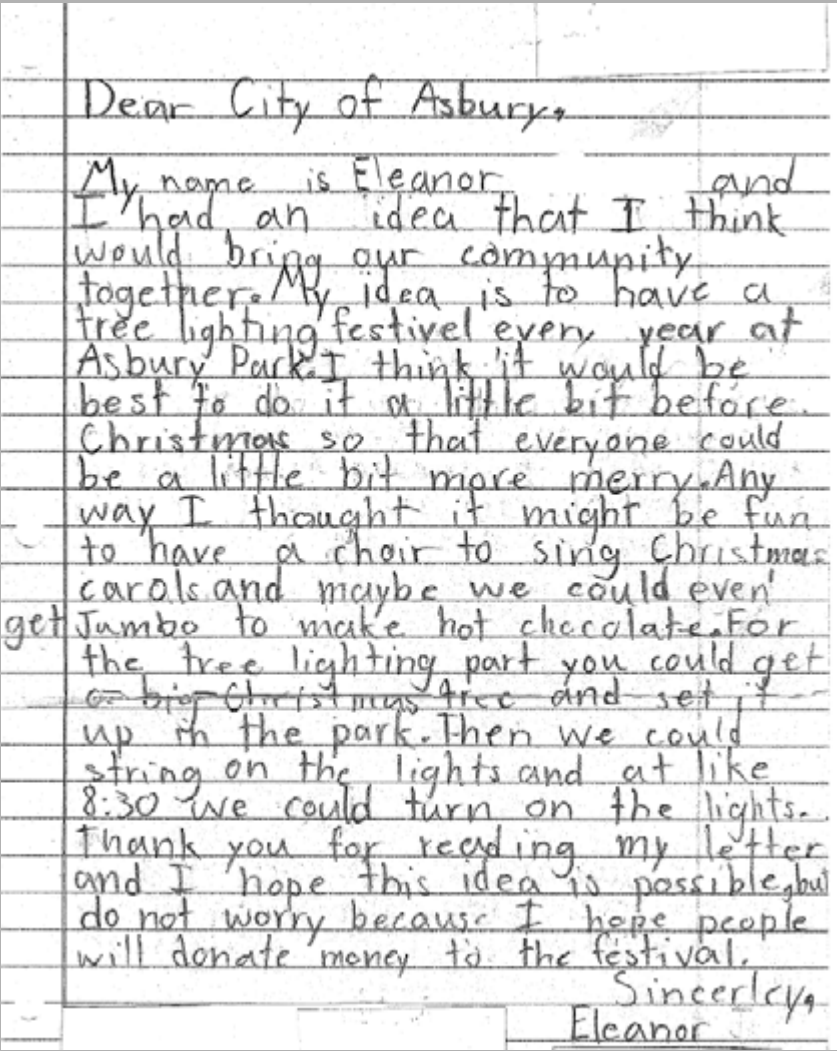 Dear City of Asbury,
My name is Eleanor and
I had an idea that I think
would bring our community
together. My idea is to have a
tree lighting festivel every year at
Asbury Park. I think it would be
best to do it a little bit before
Christmas so that everyone could
be a little bit more merry. Any
way I thought it might be fun
to have a choir to sing Christmas
carols and maybe we could even
get Jumbo to make hot chocolate. For
the tree lighting part you could get
a big Christmas tree and set it
up in the park. Then we could
string on the lights and at like
8:30 we could turn on the lights.
Thank you for reading my letter
and I hope this idea is possible, but
do not worry because I hope people
will donate money to the festival.
Sincerley,
Eleanor